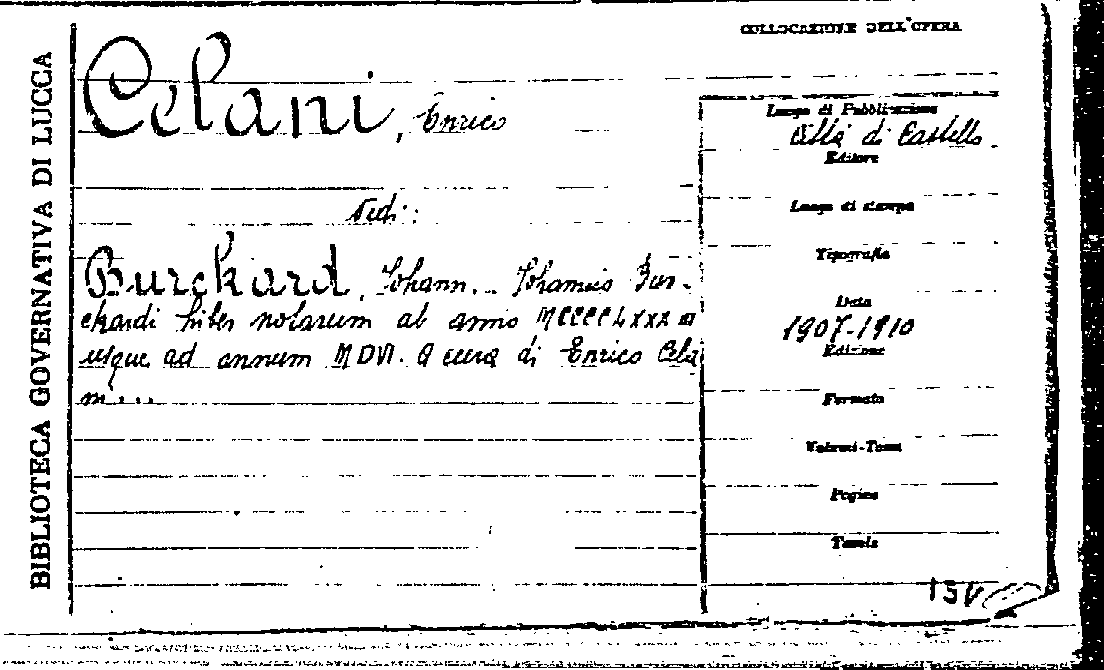 BIBLIOTECA GOVERNATIVA DI LUCCA
COLLOCAZIONE DELL'OPERA
Celani, Enrico
Vedi:
Burckard, Johann. - Johannis Bur-
ckardi liber notarum ab anno MCCCCLXXXIII
usque ad annum MDVI. A cura di Enrico Cela
ni...
Luogo di Pubblicazione
Città di Castello
Editore
Luogo di stampa
Tipografia
Data
1907-1910
Edizione
Formato
Volumi-Tomi
Pagine
Tavole